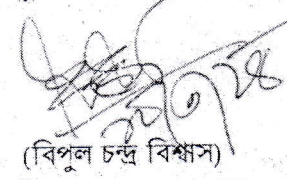 (বিপুল চন্দ্র বিশ্বাস)